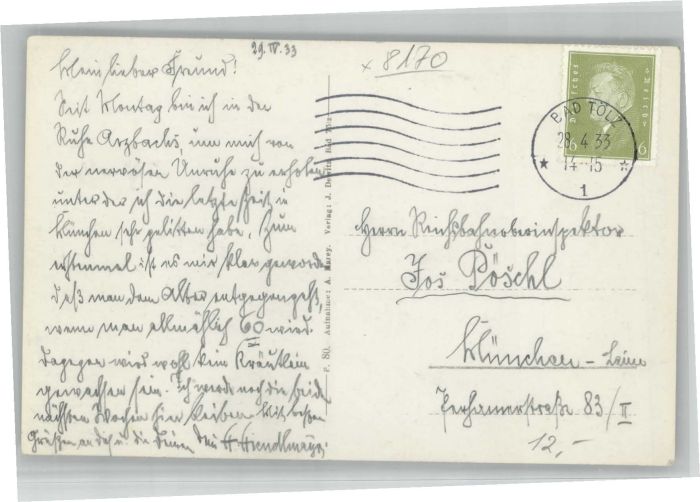 29.IV.33
x 8170
Mein lieber Freund!
Seit Montag bin ich in der
Ruhe Arzbachs, um mich von
der nervösen Unruhe zu erholen
unter der ich die letzte Zeit in
München sehr gelitten habe. Zum
erstenmal ist es mir klar geworden
daß man dem Alter entgegengeht,
wenn man allmählich 60 wird.
Dagegen wird wohl kein Kräutlein
gewachsen sein. Ich werde noch die beiden
nächsten Wochen hier bleiben. Mit besten
Grüßen an dich u. die Deinen dein
Deutsches Reich
6 6
BAD TÖLZ
28.4.33
14-15
1
Herrn Reichsbahnoberinspektor
Jos Pöschl
München - Laim
Perhamerstraße 83/II
12,-
F. 80. Aufnahme: A. Verlag: J. Bad Tölz